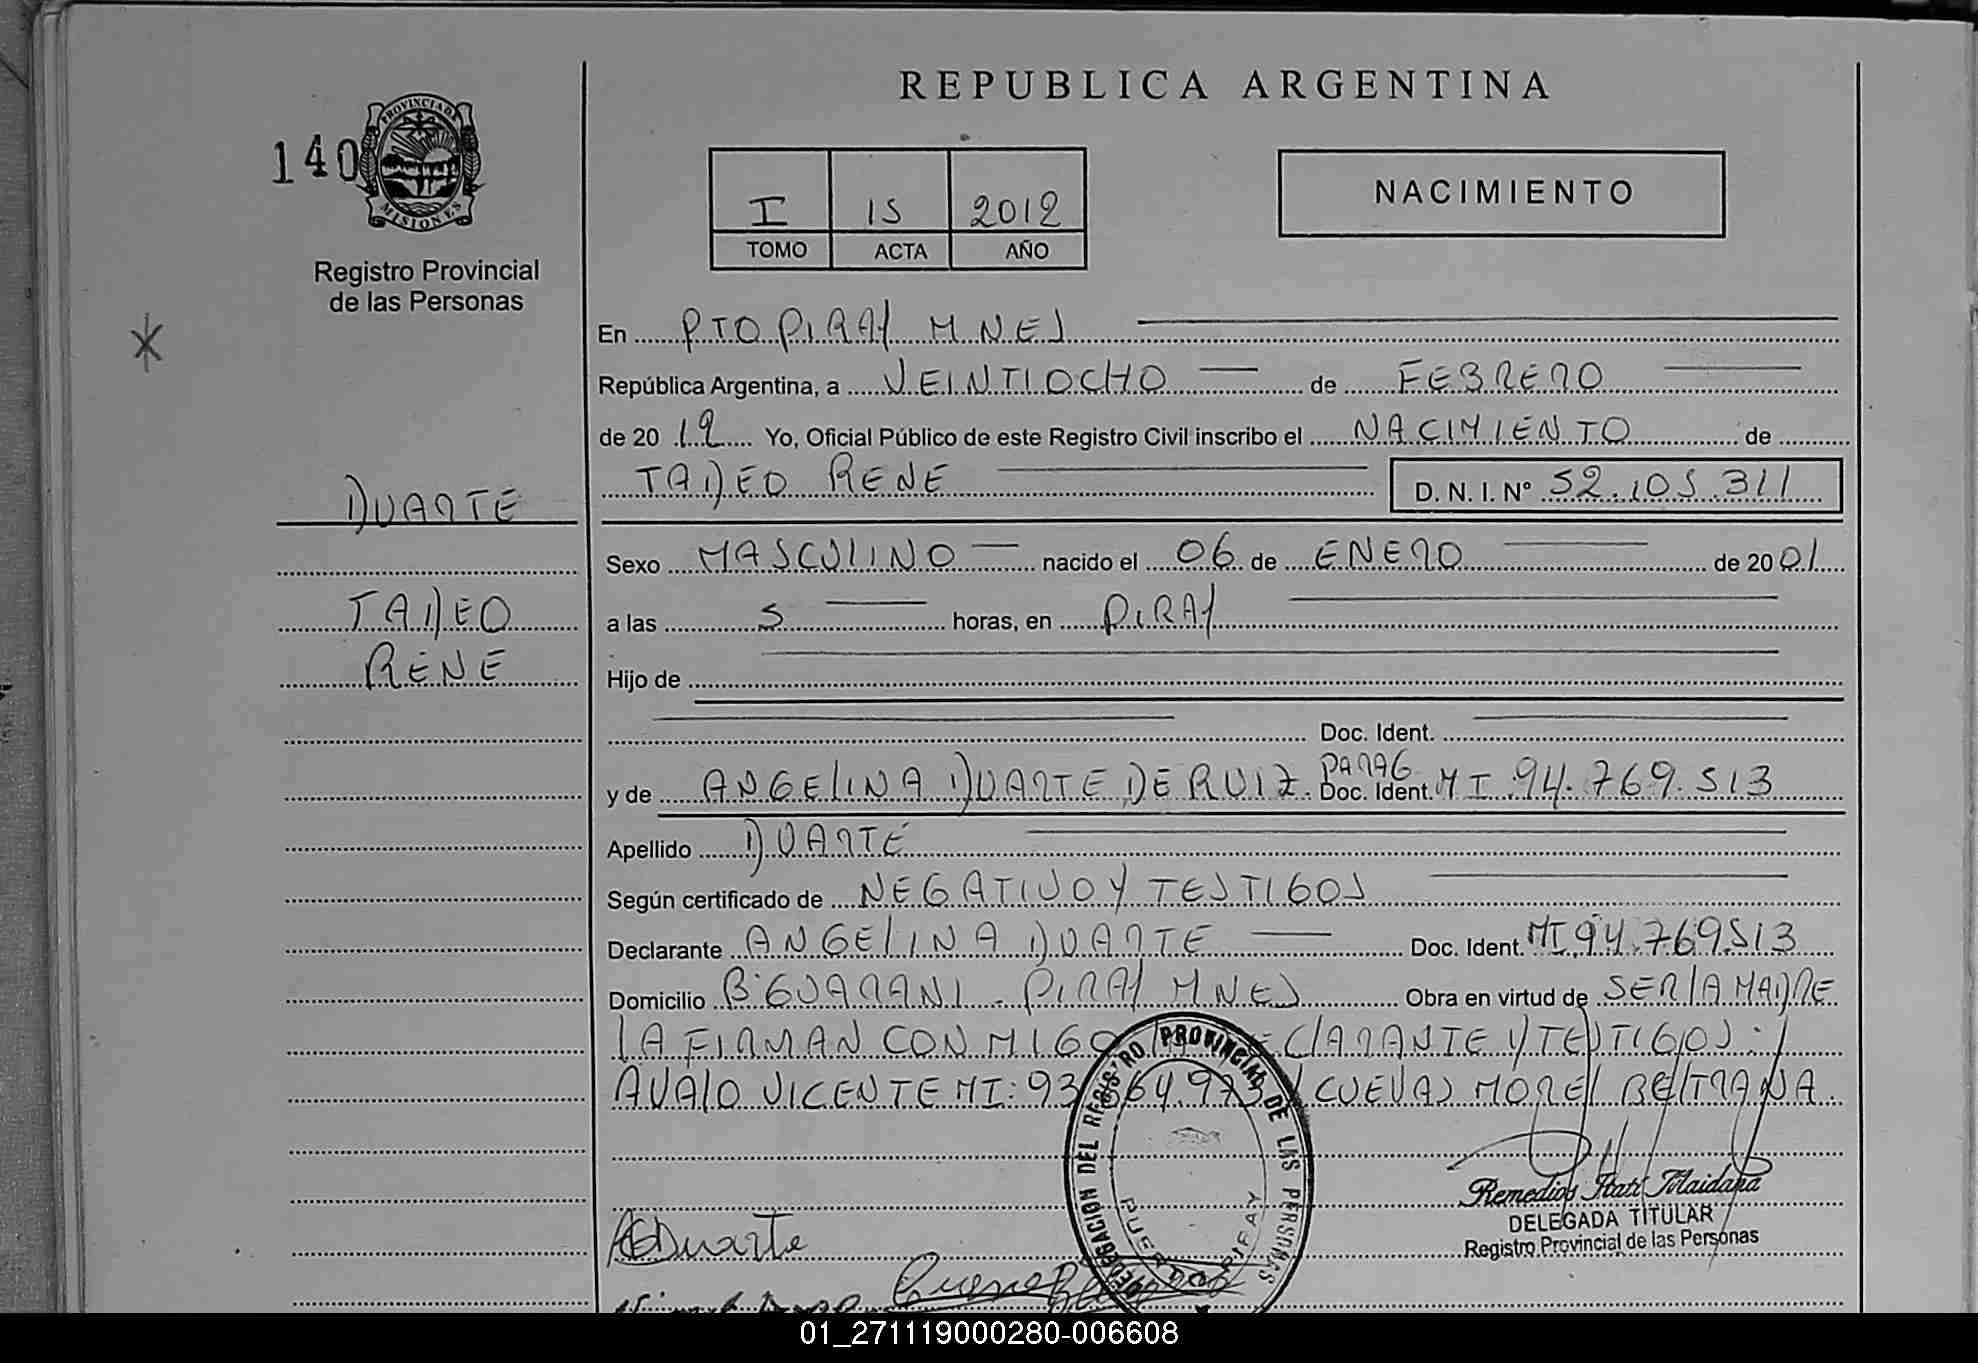 REPUBLICA ARGENTINA
140
PROVINCIA DE
MISIONES
Registro Provincial
de las Personas
I 15 2012
TOMO ACTA AÑO
NACIMIENTO
En PTO PIRAY MNES
República Argentina, a VEINTIOCHO de FEBRERO
de 20 12 Yo, Oficial Público de este Registro Civil inscribo el NACIMIENTO de
TADEO RENE D. N. I. Nº 52.105.311
DUARTE
TADEO
RENE
Sexo MASCULINO nacido el 06 de ENERO de 20 01
a las 5 horas, en PIRAY
Hijo de
Doc. Ident.
y de ANGELINA DUARTE DE RUIZ. PARAG Doc. Ident. MI 94.769.513
Apellido DUARTE
Según certificado de NEGATIVO Y TESTIGOS
Declarante ANGELINA DUARTE Doc. Ident. MI 94.769513
Domicilio Bº GUARANI - PIRAY MNES Obra en virtud de SER LA MADRE
LA FIRMAN CON MIGO CLARANTE Y TESTIGOS:
AVALO VICENTE MI: 93 64.973 CUEVAS MOREL BELTRANA.
DELEGACION DEL REGISTRO PROVINCIAL DE LAS PERSONAS
PUERTO PIRAY
Remedios Itatí Maidana
DELEGADA TITULAR
Registro Provincial de las Personas
ADuarte
01_271119000280-006608